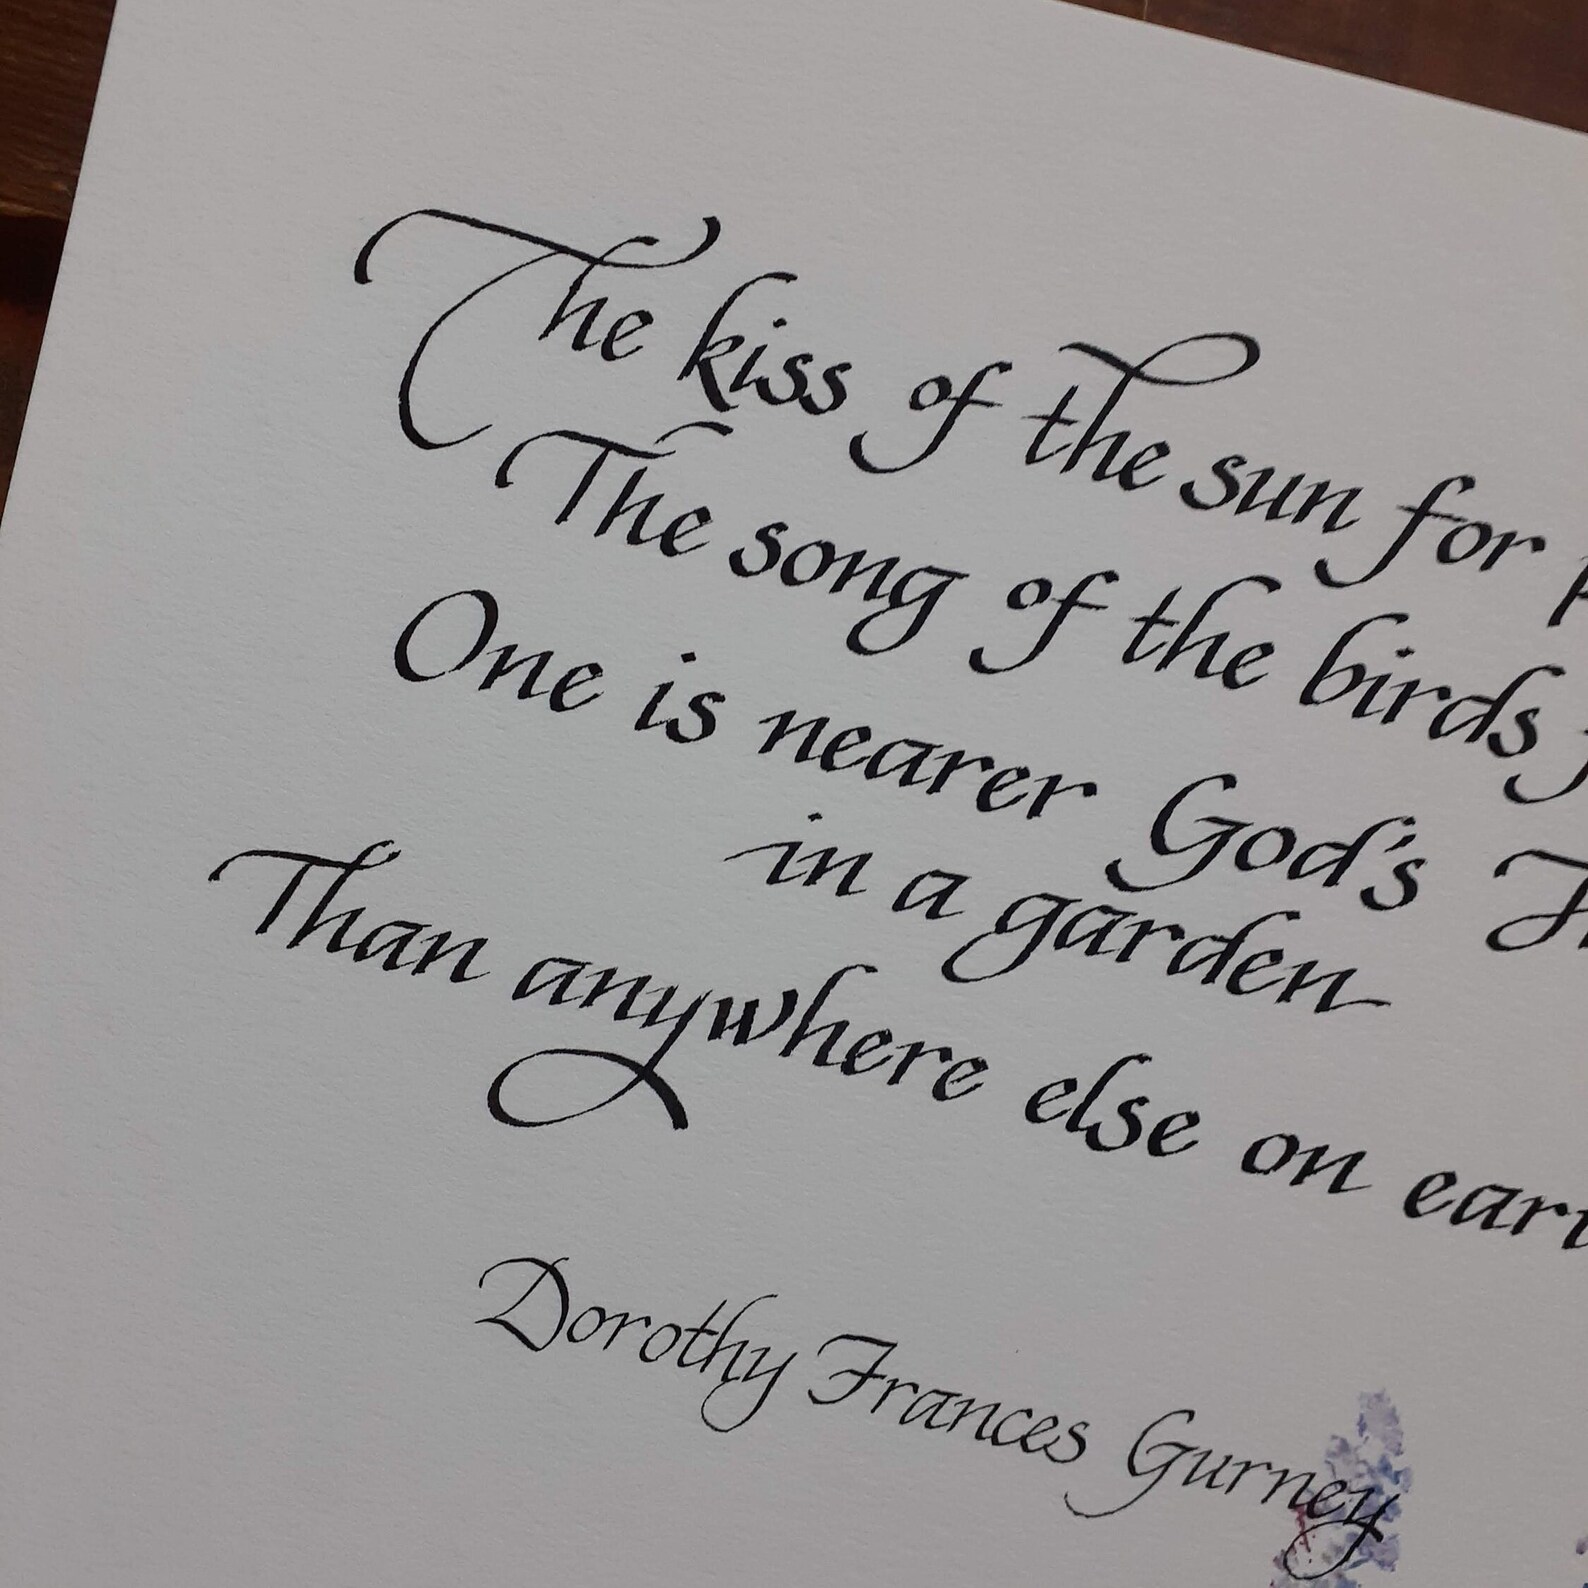 The kiss of the sun for
The song of the birds
One is nearer God's
in a garden
Than anywhere else on
Dorothy Frances Gurney